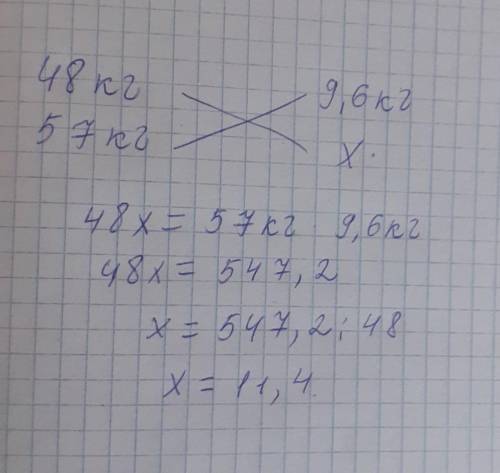 48 кг 9,6 кг
57 кг x.
48x = 57 кг 9,6 кг
48x = 547,2
x = 547,2 : 48
x = 11,4